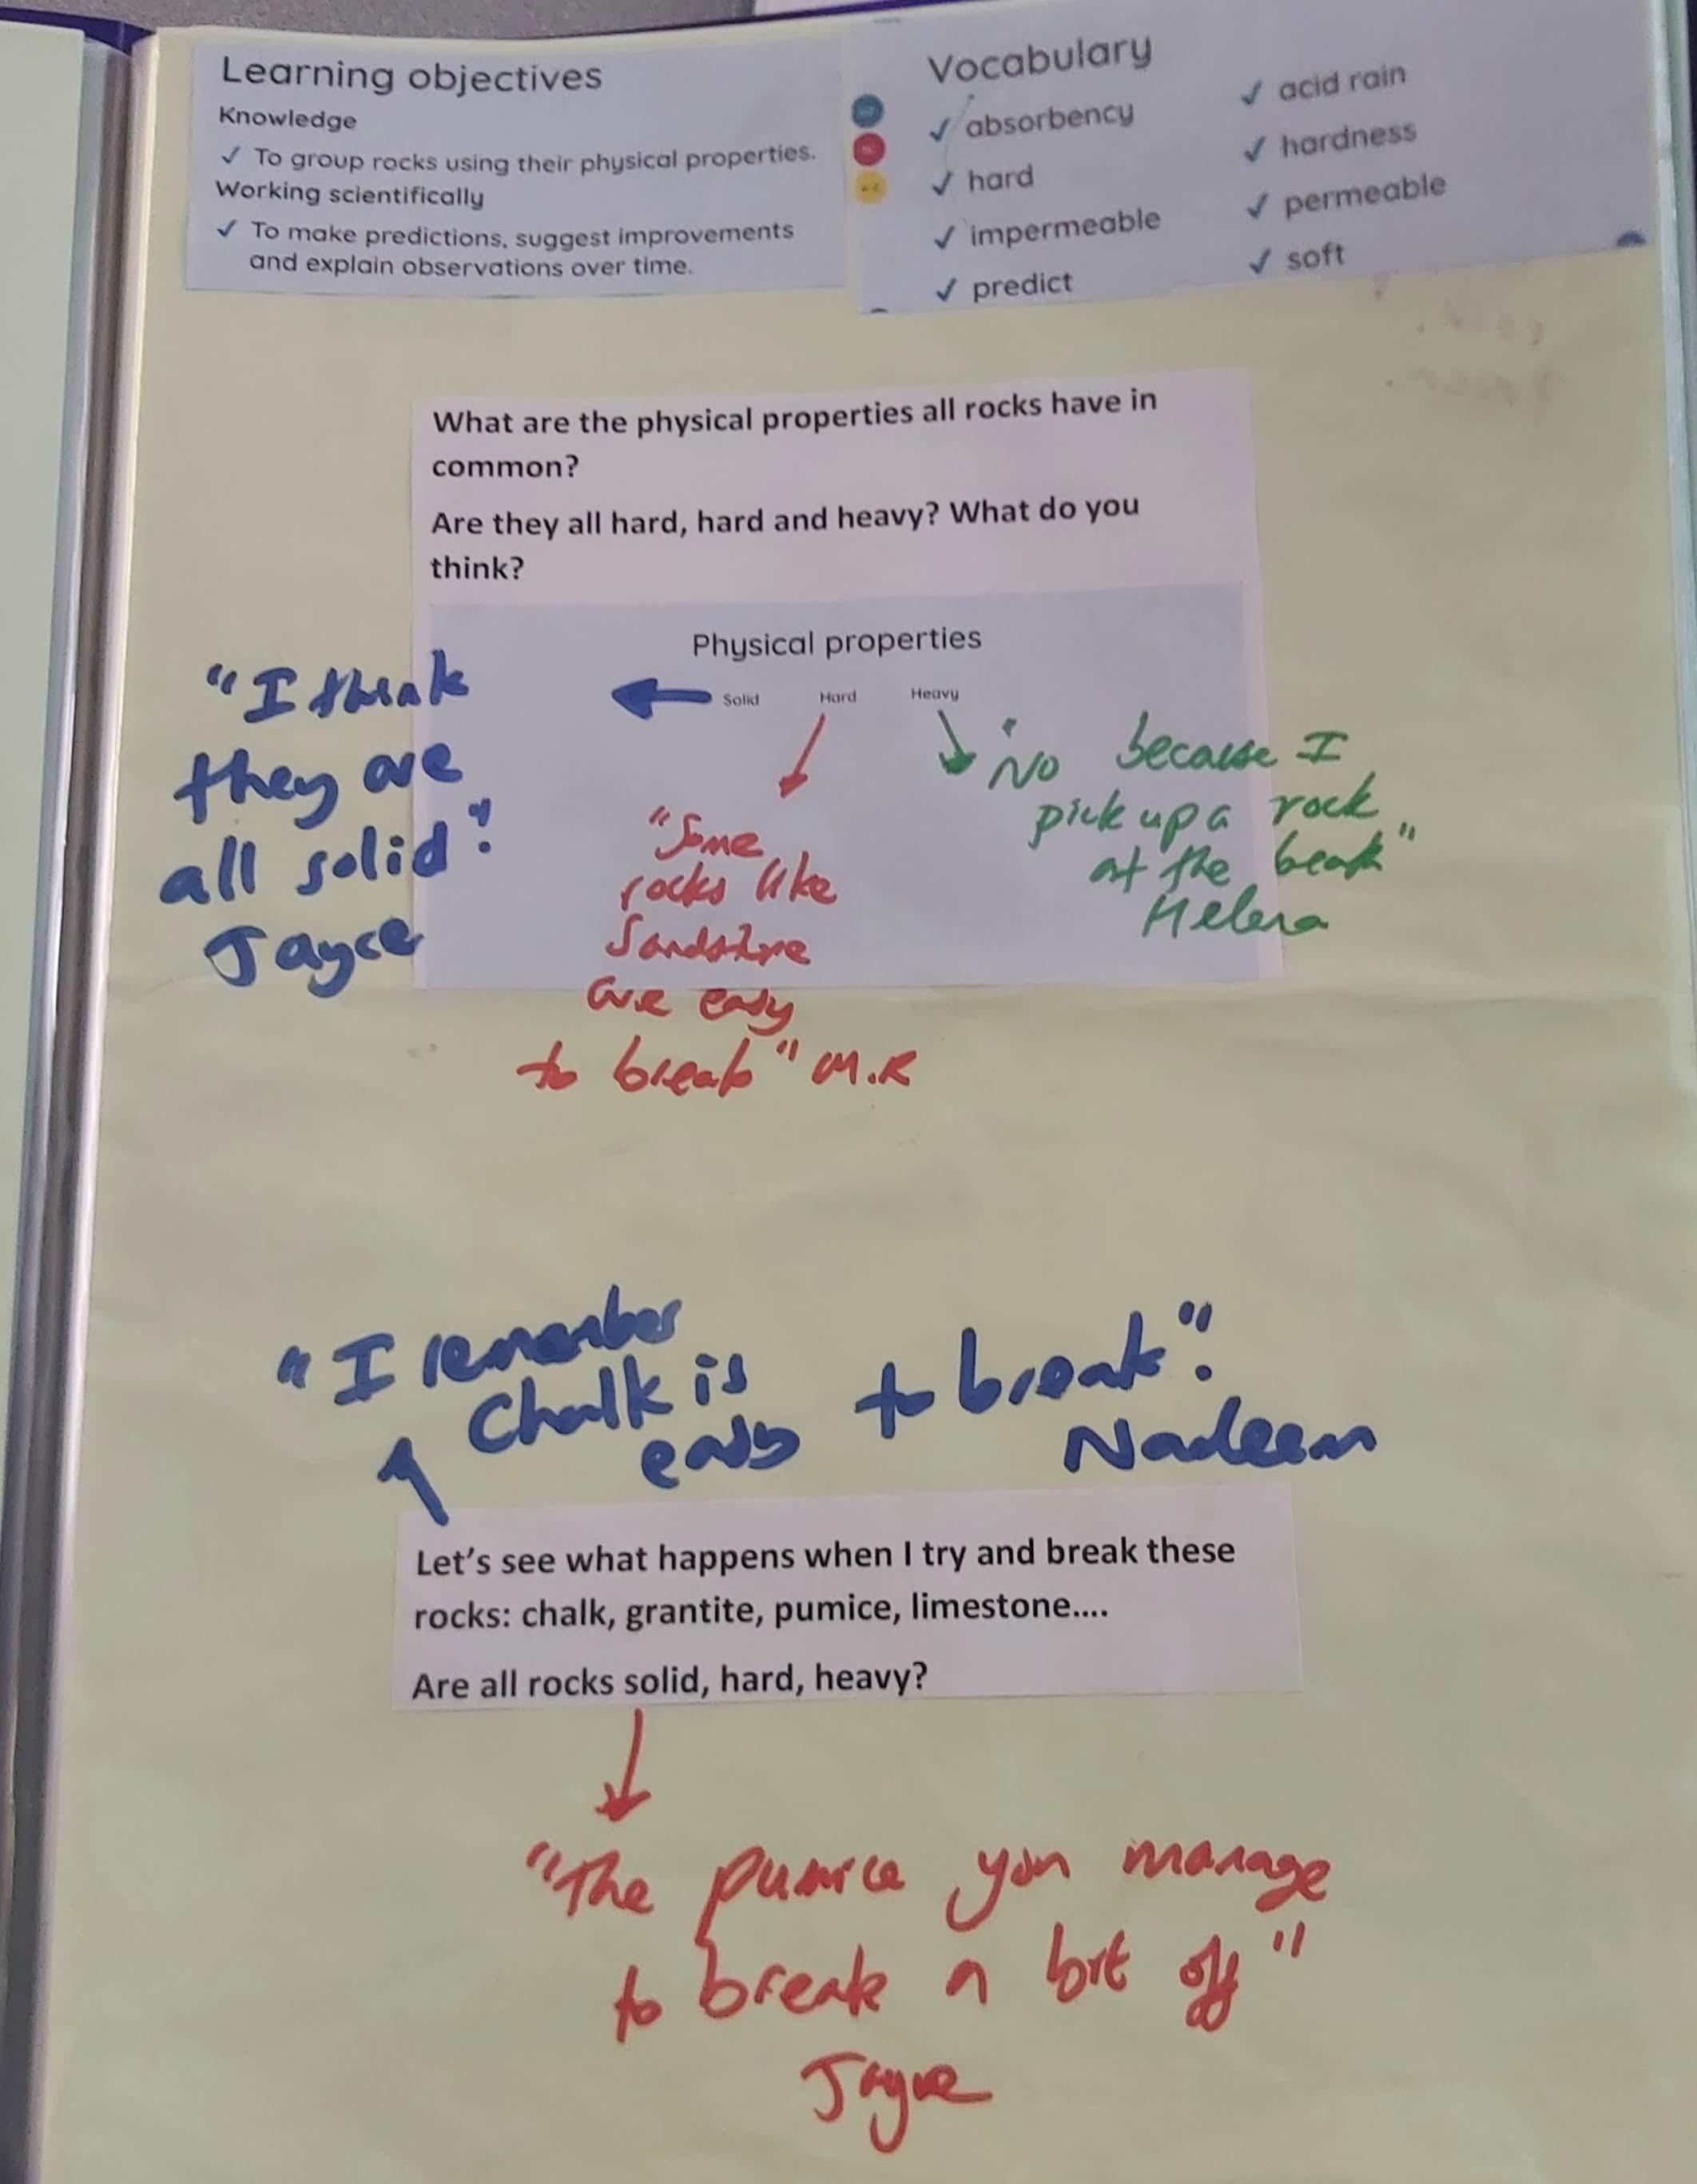 Learning objectives
Knowledge
✓ To group rocks using their physical properties.
Working scientifically
✓ To make predictions, suggest improvements
and explain observations over time.
Vocabulary
✓ absorbency
✓ hard
✓ impermeable
✓ predict
✓ acid rain
✓ hardness
✓ permeable
✓ soft
What are the physical properties all rocks have in
common?
Are they all hard, hard and heavy? What do you
think?
Physical properties
Solid Hard Heavy
"I think
they are
all solid".
Jayce
"Some
rocks like
Sandstone
are easy
to break" M.R
"No because I
pick up a rock
at the beach"
Helena
"I remember
Chalk is
easy to break".
Nadeem
Let's see what happens when I try and break these
rocks: chalk, grantite, pumice, limestone....
Are all rocks solid, hard, heavy?
"The pumice you manage
to break a bit off"
Jayce